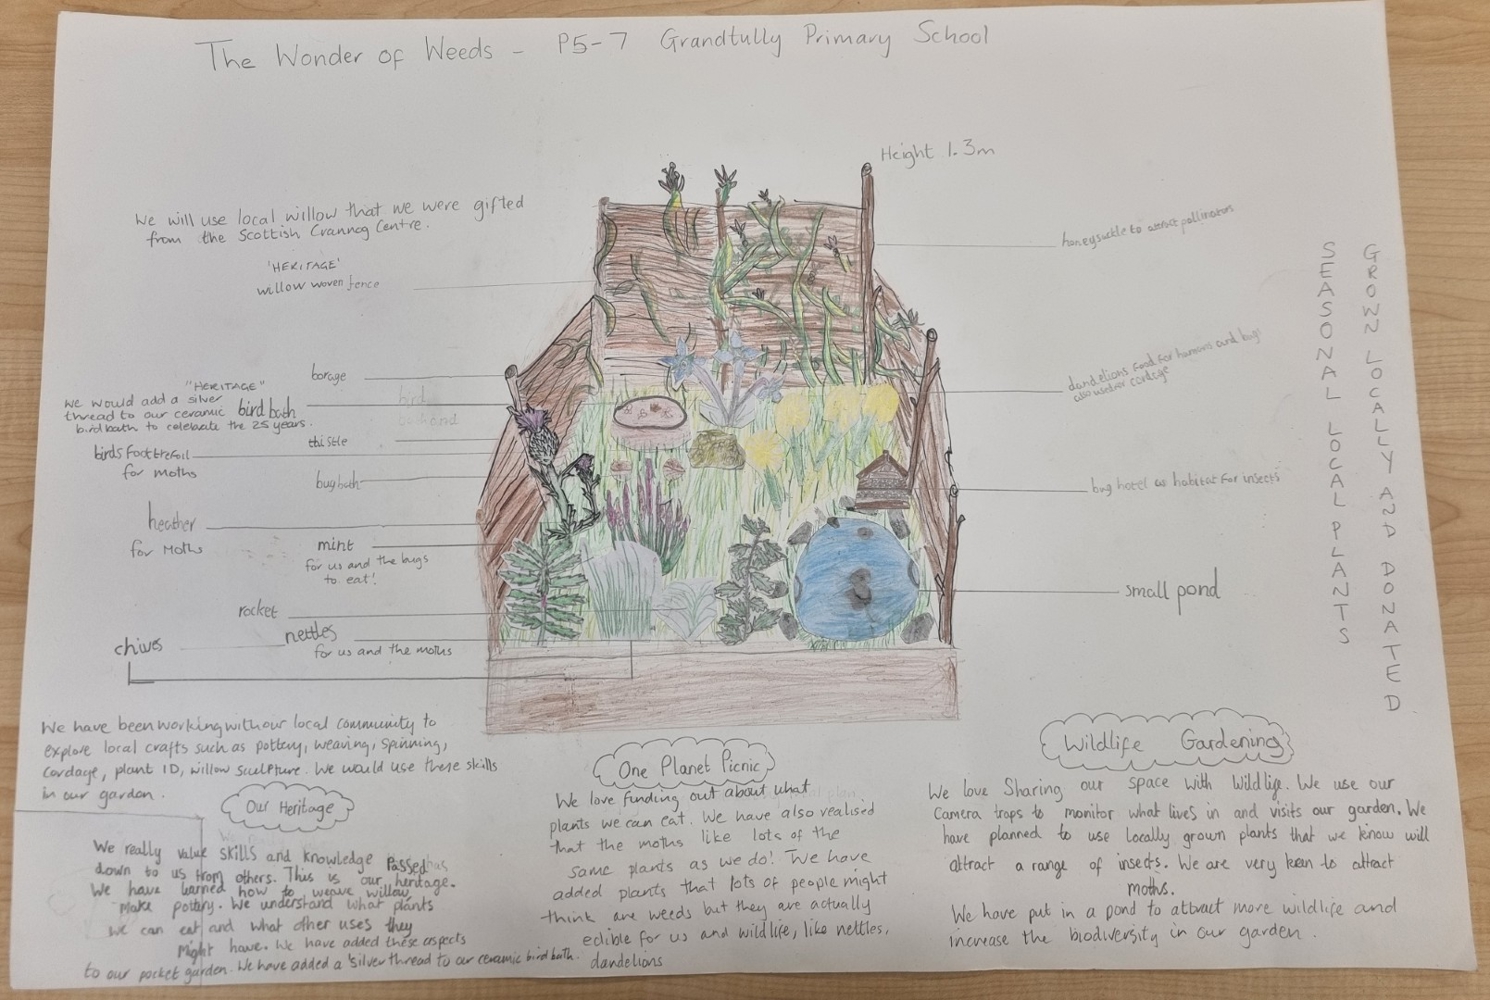 The Wonder of Weeds - P5-7 Grandtully Primary School
Height 1.3m
We will use local willow that we were gifted
from the Scottish Crannog Centre.
'HERITAGE'
willow woven fence
honeysuckle to attract pollinators
borage
"HERITAGE"
we would add a silver
thread to our ceramic bird bath
birdbath to celebrate the 25 years.
thistle
birds foot trefoil
for moths
bug bath
heather
for Moths
mint
for us and the bugs
to eat!
rocket
nettles
for us and the moths
chives
dandelions food for humans and bugs
also used for cordage
bug hotel as habitat for insects
small pond
SEASONAL LOCAL PLANTS
GROWN LOCALLY AND DONATED
We have been working with our local community to
explore local crafts such as pottery, weaving, spinning,
cordage, plant ID, willow sculpture. We would use these skills
in our garden.
Our Heritage
We really value skills and knowledge passed
down to us from others. This is our heritage.
We have learned how to weave willow,
make pottery. We understand what plants
we can eat and what other uses they
might have. We have added these aspects
to our pocket garden. We have added a 'silver thread to our ceramic bird bath.
One Planet Picnic
We love finding out about what
plants we can eat. We have also realised
that the moths like lots of the
same plants as we do! We have
added plants that lots of people might
think are weeds but they are actually
edible for us and wildlife, like nettles,
dandelions
Wildlife Gardening
We love Sharing our space with wildlife. We use our
Camera traps to monitor what lives in and visits our garden. We
have planned to use locally grown plants that we know will
attract a range of insects. We are very keen to attract
moths.
We have put in a pond to attract more wildlife and
increase the biodiversity in our garden.